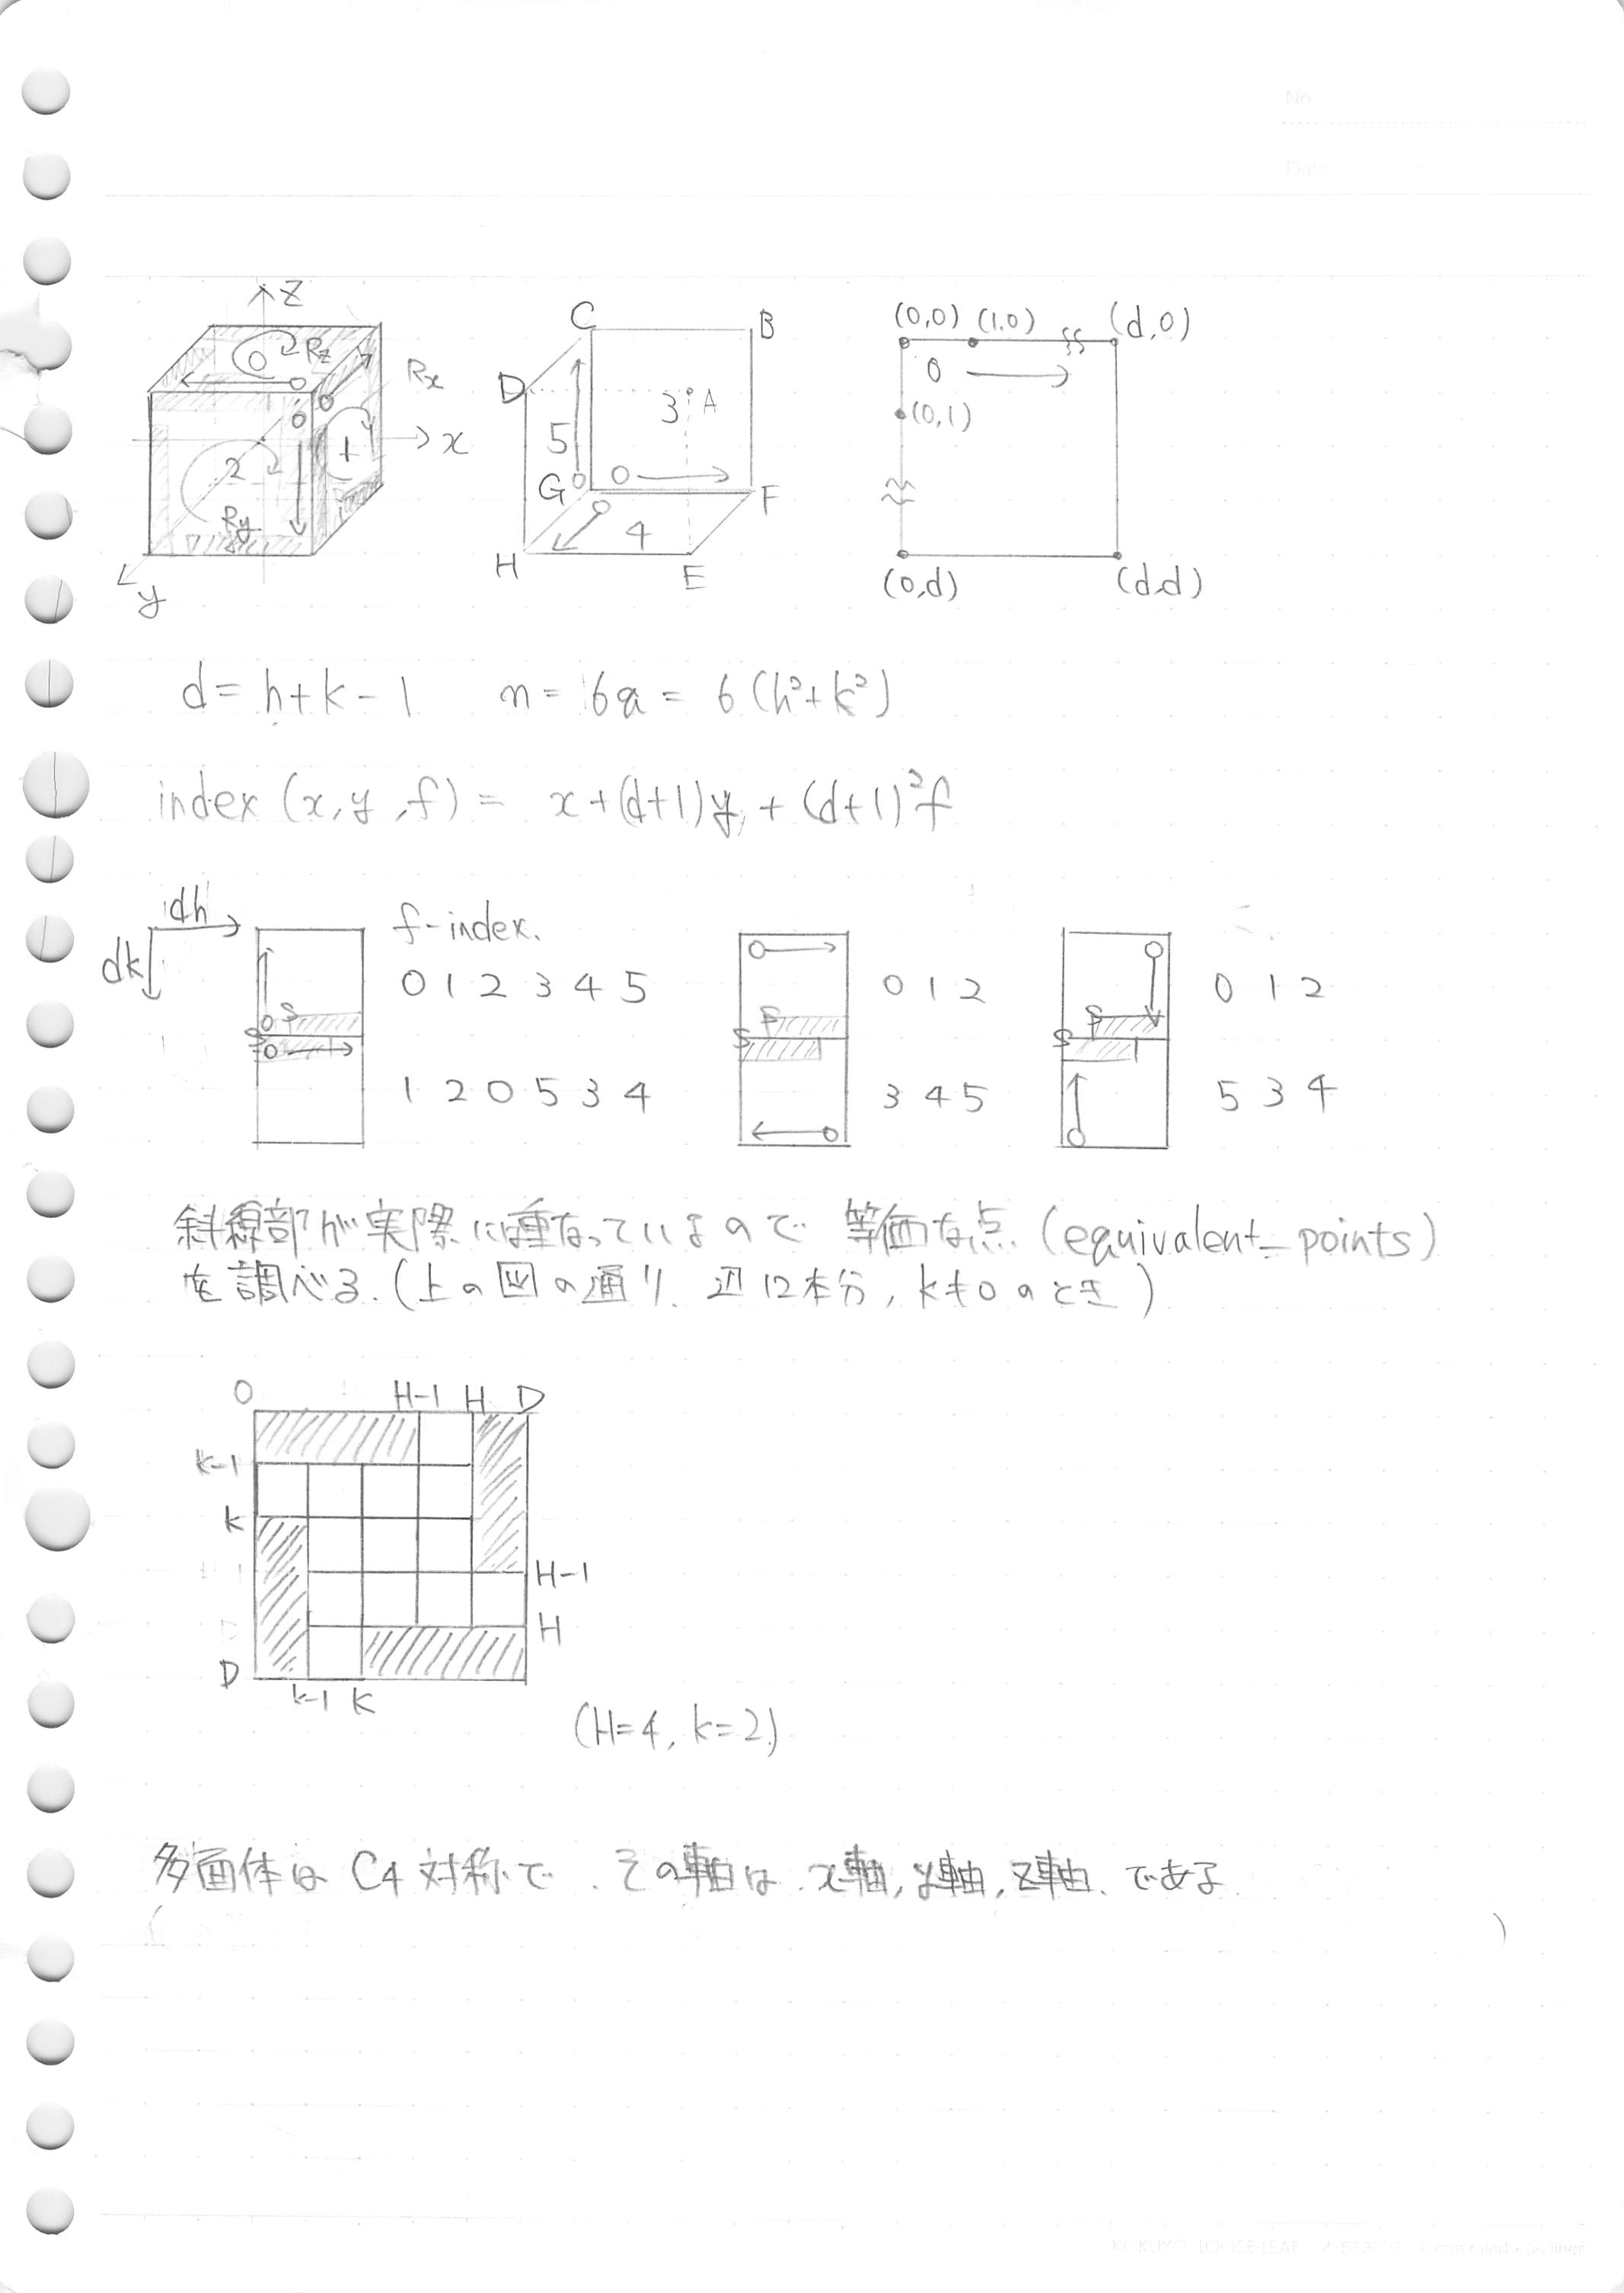 No.
Date
Z
0
Rz
Rx
1
x
2
Ry
y
C
B
D
3
A
5
G
F
4
H
E
(0,0) (1,0) (d,0)
(0,1)
(0,d)
(d,d)
d = h+k-1 n = 6a = 6(h²+k²)
index (x, y, f) = x+(d+1)y + (d+1)²f
dh
dk
f-index.
0 1 2 3 4 5
1 2 0 5 3 4
0 1 2
3 4 5
0 1 2
5 3 4
斜線部が実際には重なっているので 等価な点 (equivalent_points)
を調べる.(上の図の通り. 辺12本分, k≠0のとき)
0 H-1 H D
k-1
k
H-1
H
D
k-1 k
(H=4, k=2)
多面体は C4 対称で. その軸は x軸, y軸, z軸. である
( )